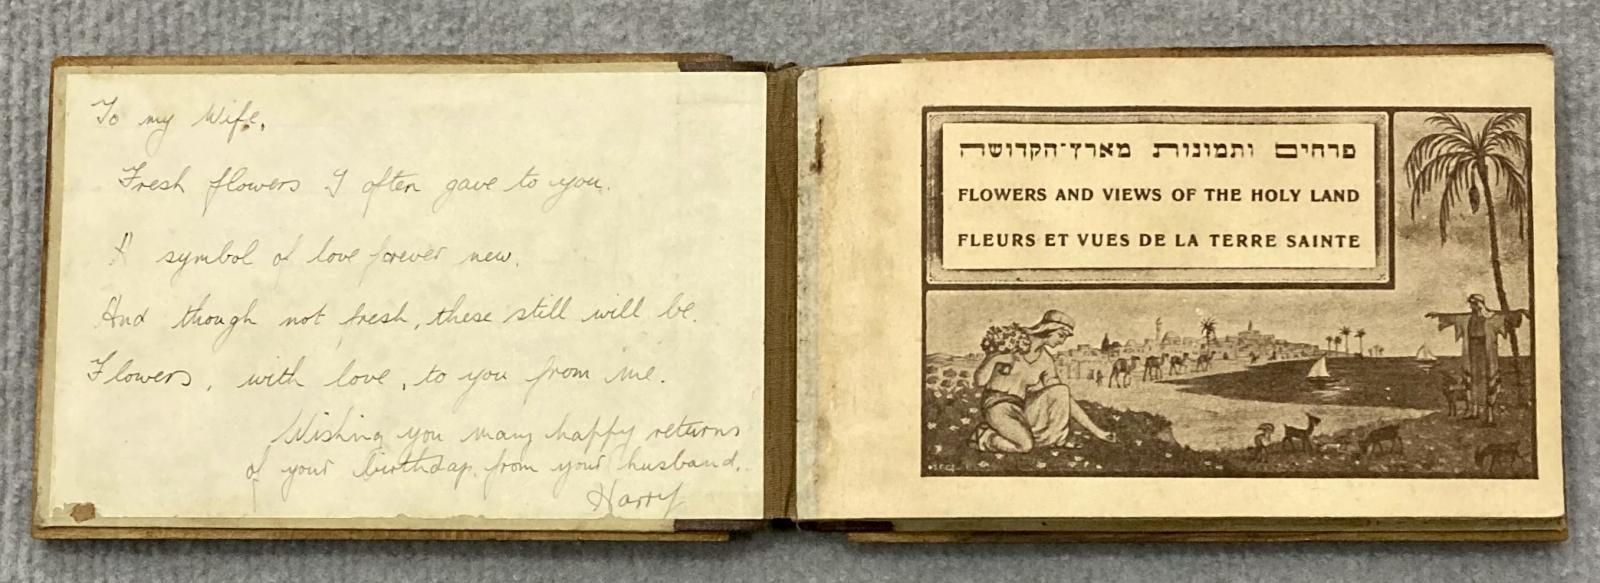 To my Wife,
Fresh flowers I often gave to you.
A symbol of love forever new.
And though not fresh, these still will be.
Flowers, with love, to you from me.
Wishing you many happy returns
of your birthday from your husband.
Harry
פרחים ותמונות מארץ־הקדושה
FLOWERS AND VIEWS OF THE HOLY LAND
FLEURS ET VUES DE LA TERRE SAINTE